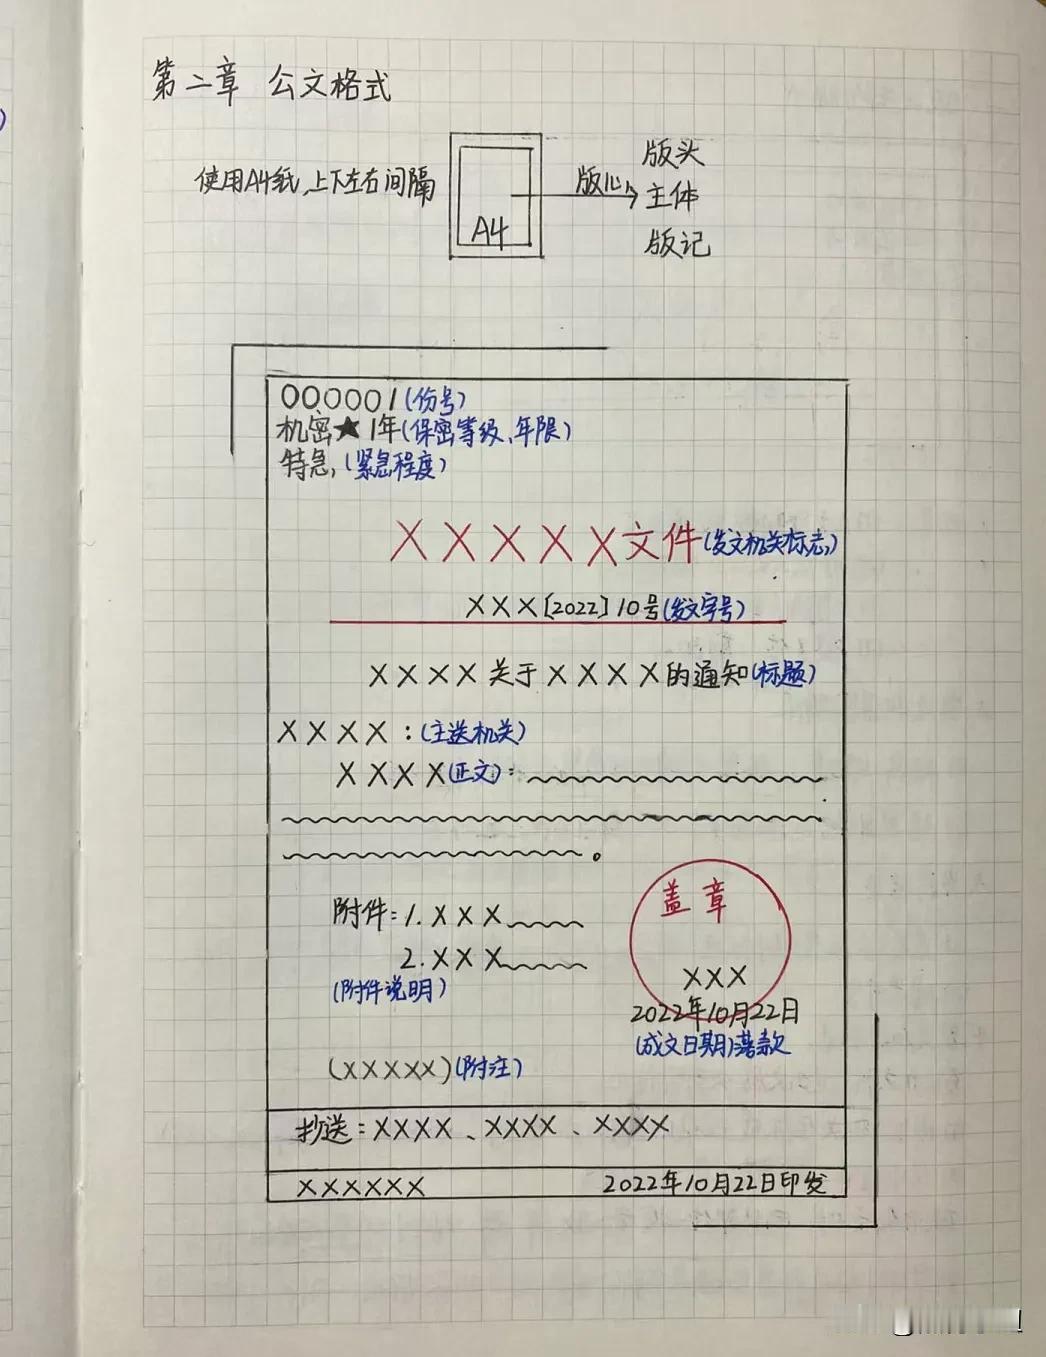 第二章 公文格式
使用A4纸,上下左右间隔
A4
版心
版头
主体
版记
000001(份号)
机密★1年(保密等级、年限)
特急,(紧急程度)
XXXXX文件(发文机关标志)
XXX〔2022〕10号(发文字号)
XXXX关于XXXX的通知(标题)
XXXX:(主送机关)
XXXX(正文):
。
附件:1.XXX
2.XXX
(附件说明)
盖章
XXX
2022年10月22日
(成文日期)落款
(XXXXX)(附注)
抄送:XXXX、XXXX、XXXX
XXXXXX 2022年10月22日印发